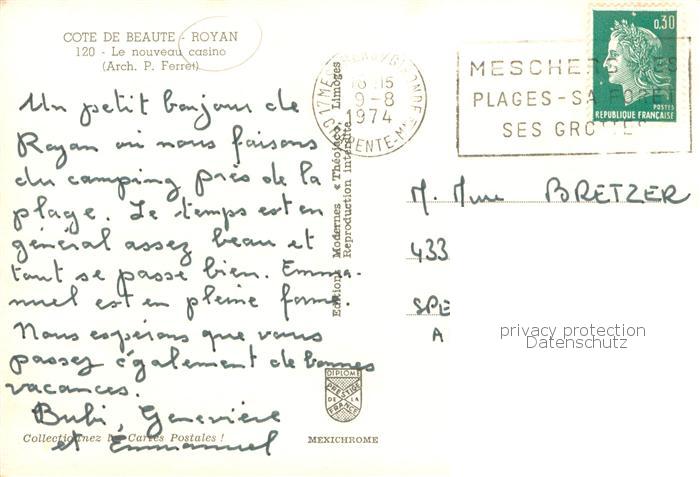 COTE DE BEAUTE - ROYAN
120 - Le nouveau casino
(Arch. P. Ferret)
Un petit bonjour de
Royan où nous faisons
du camping près de la
plage. Le temps est en
général assez beau et
tout se passe bien. Emma-
nuel est en pleine forme.
Nous espérons que vous
passez également de bonnes
vacances.
Bubi, Geneviève
et Emmanuel
Collectionnez les Cartes Postales !
Editions Modernes « Théojac », Limoges
Reproduction interdite
DIPLOME
PRESTIGE
DE LA
FRANCE
MEXICHROME
18 15
9-8
1974
CHARENTE-Mme
MESCHERS
PLAGES-SA FORET
SES GROTTES
0,30
POSTES
REPUBLIQUE FRANÇAISE
M. Mme BRETZER
433
SPE
A
privacy protection
Datenschutz